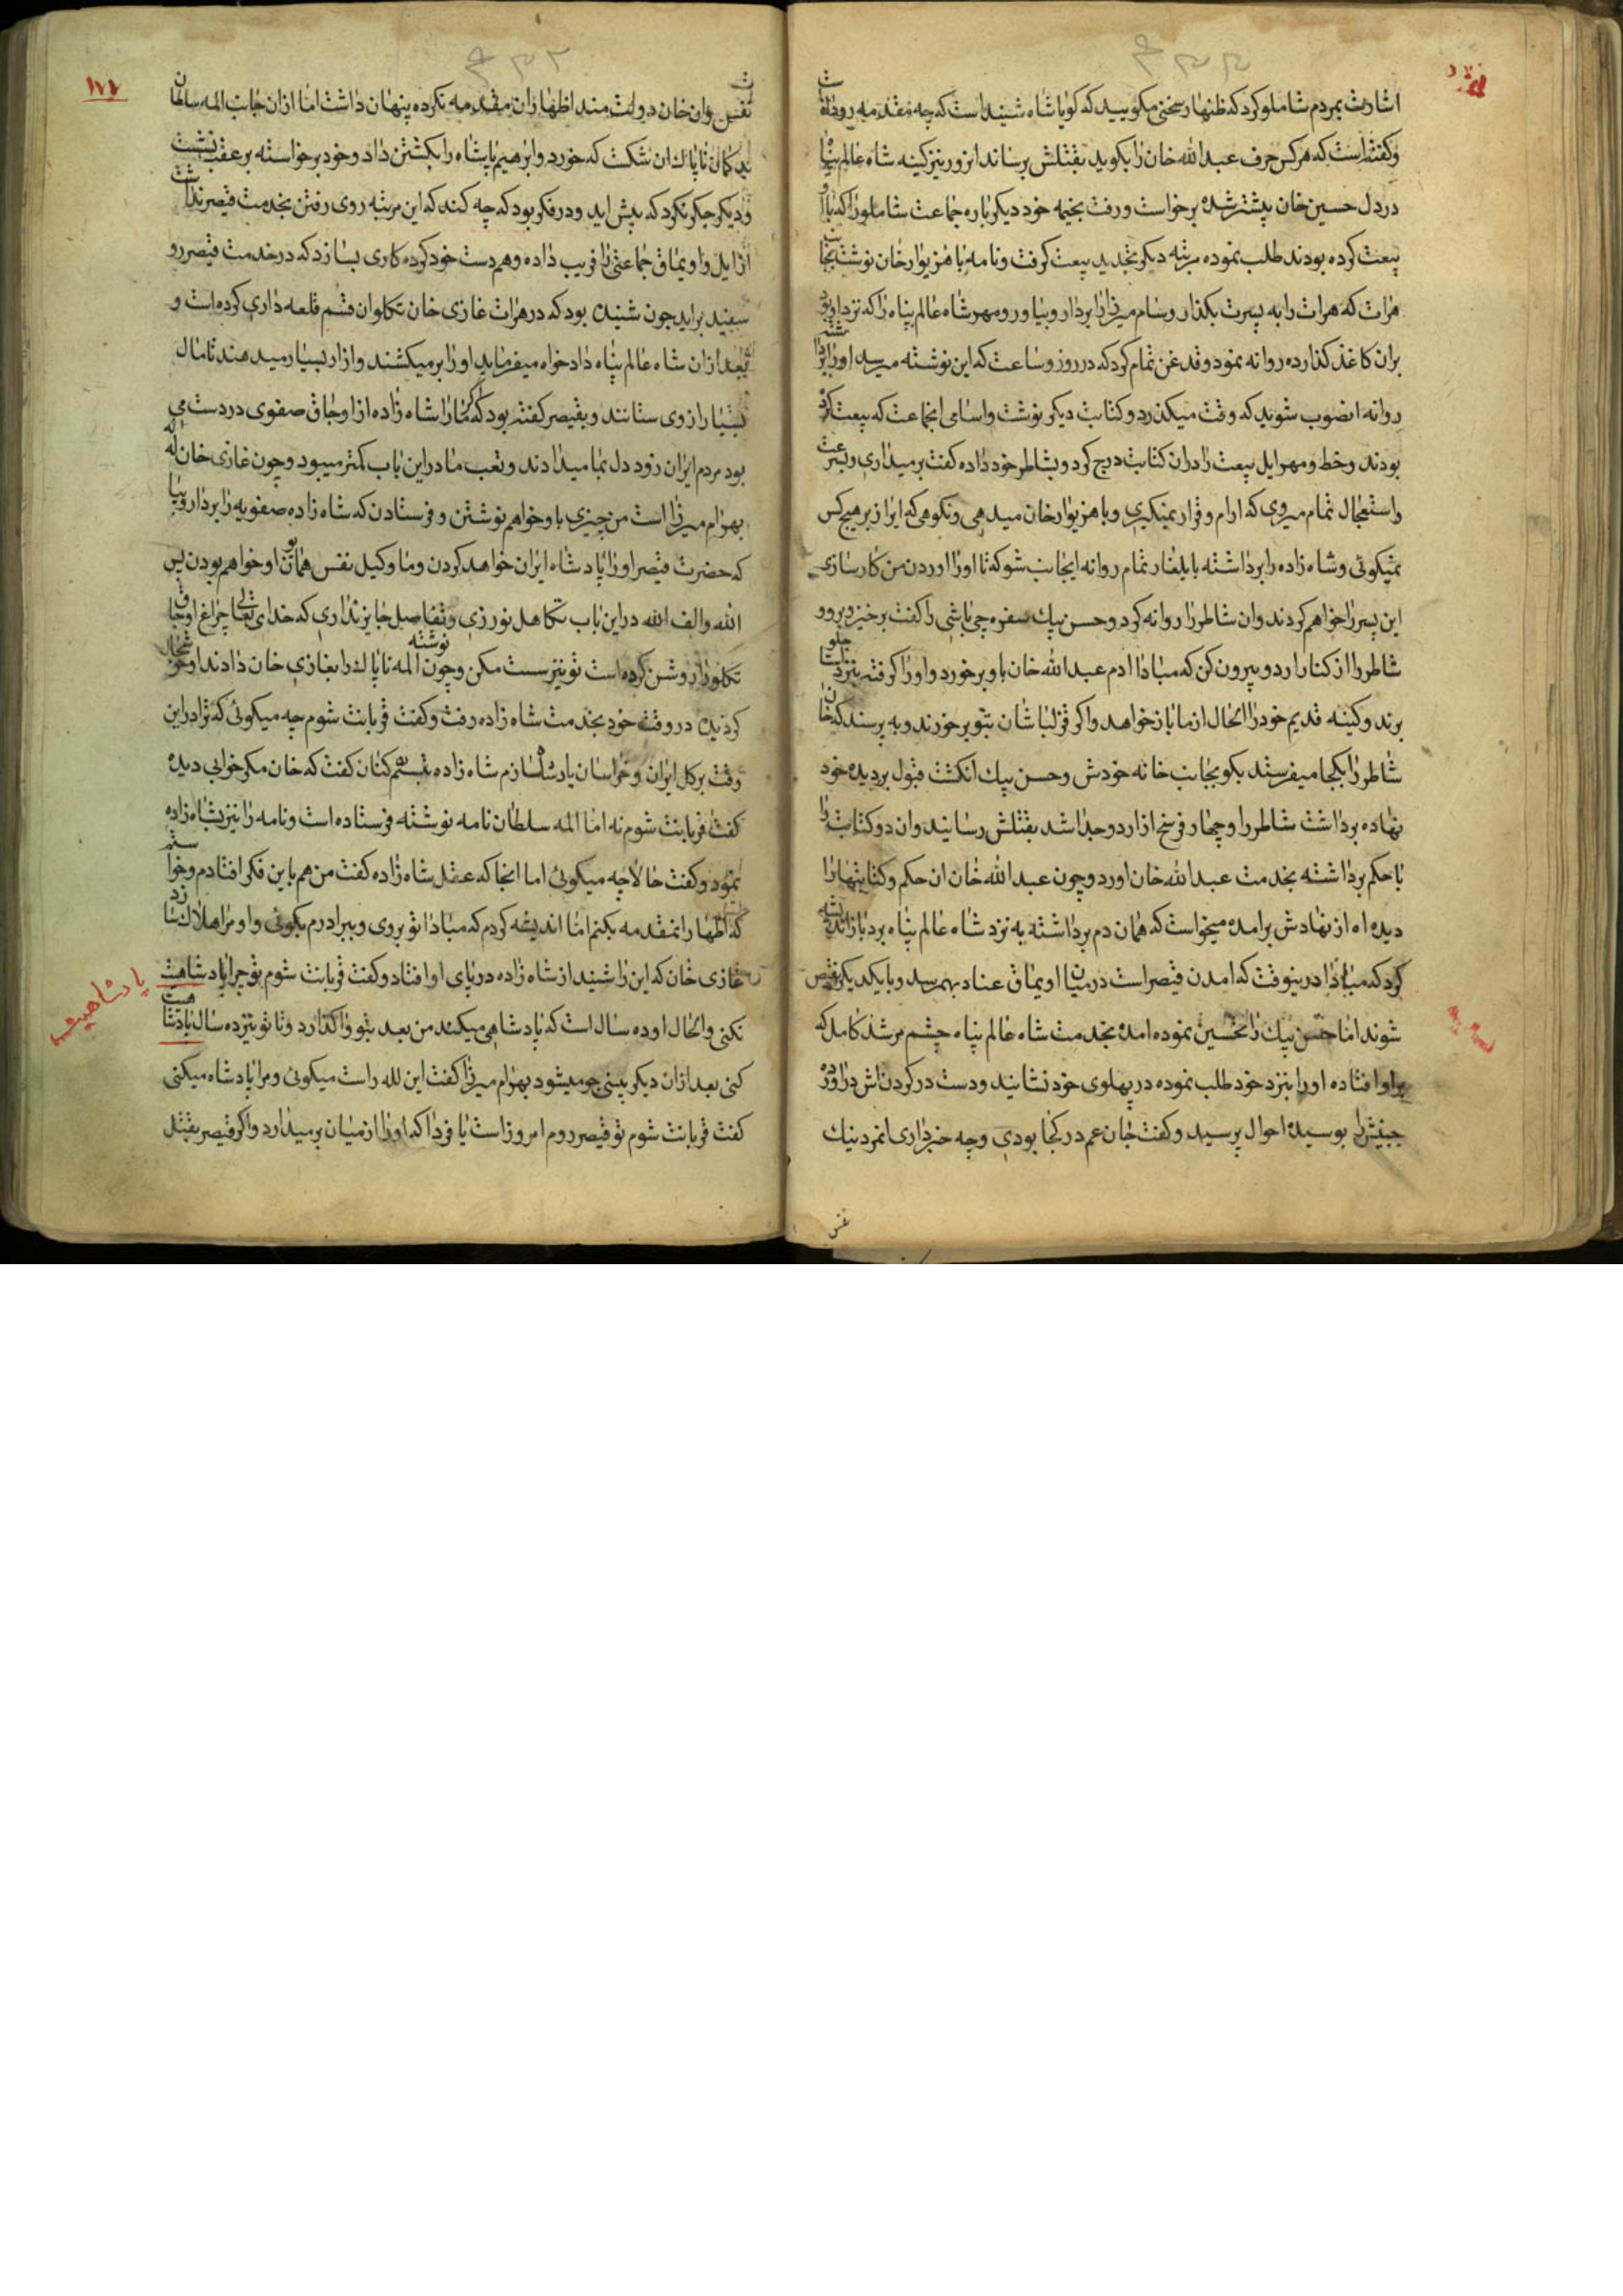 اشارت بمردم شاملو کرد که ظنهار سخنی مکویید که کویا شاه شنیده است که چه مقدمه روداده
و کفته است که هر کس حرف عبدالله خان را بکوید بقتلش برساند انزور نیز کینه شاه عالم پناه
در دل حسین خان بیشتر شده برخواست و رفت بخیمه خود دیکر باره جماعت شاملو را که با او
بیعت کرده بودند طلب نموده مرتبه دیکر بتجدید بیعت کرفت و نامه با هزبوار خان نوشت بجانب
هرات که هرات را به پسرت بکذار و سام میرزا را بردار و بیاور و مهر شاه عالم پناه را که نزد او بود
بران کاغذ کذارده روانه نمود و قدغن تمام کرد که در روز و ساعت که این نوشته میرسد او را برداشته
روانه انصوب شوید که وقت میکذرد و کتابت دیکر نوشت و اسامی انجماعت که بیعت کرده
بودند و خط و مهر ایل بیعت را دران کتابت درج کرد و بشاطر خود داده کفت بر میداری و بسرعت
و استعجال تمام میروی که ارام و قرار نمیکیری و با هزبوار خان میدهی و نکوهی که این راز بر هیچ کس
نمیکوئی و شاه زاده را برداشته بایلغار تمام روانه اینجانب شو که تا او را اوردن من کار سازی
این پسر را خواهم کردند و ان شاطر را روانه کرد و حسن بیک سفره چی باشی را کفت برخیز و برو و جلو
شاطر را از کنار اردو بیرون کن که مبادا ادم عبدالله خان باو برخورد و او را کرفته بنزد شاه
برند و کینه قدیم خود را الحال از ما باز خواهد و اکر قزلباشان بتو برخورند و به پرسند که خان
شاطر را بکجا میفرستد بکو بجانب خانه خودش و حسن بیک انکشت قبول بر دیده خود
نهاده برداشت شاطر را و چهار فرسخ از اردو جدا شد بقتلش رسانید و ان دو کتابت را
با حکم برداشته بخدمت عبدالله خان اورد و چون عبدالله خان ان حکم و کتابتها را
دیده اه از نهادش برامده میخواست که همان دم برداشته به نزد شاه عالم پناه برد باز اندیشه
کرد که مبادا درینوقت که امدن قیصر است در میان اویماق عناد بهم رسد و با یکدیکر نقیض
شوند اما حسن بیک را تحسین نموده امده بخدمت شاه عالم پناه چشم مرشد کامل که
بر او افتاده او را بنزد خود طلب نموده در پهلوی خود نشانید و دست در کردن اش دراورده
جبینش را بوسیده احوال پرسید و کفت جان عم در کجا بودی و چه خبر داری انمرد نیک
نفس
۱۷۷
نفس و ان خان دولت مند اظهار ان مقدمه نکرده پنهان داشت اما ازان جانب المه سلطان
بدکمان ناپاک ان شکست که خورد و ابرهیم پاشاه را بکشتن داد و خود برخواسته بر عقب نشست
و دیکر جکر نکرد که پیش اید و در فکر بود که چه کند که این مرتبه روی رفتن بخدمت قیصر نداشت
از ایل و اویماق جماعتی را فریب داده و هم دست خود کرده کاری بسازد که در خدمت قیصر رو
سفید براید چون شنیده بود که در هرات غازی خان تکلو ان قسم قلعه داری کرده است و
بعد ازان شاه عالم پناه داد خواه میفرماید او را بر میکشند و ازار بسیار میدهند تا مال
بسیار از وی ستانند و بقیصر کفته بود که اکر ما را شاه زاده از اوجاق صفوی در دست می
بود مردم ایران زود دل بما میدادند و تعب ما در این باب کمتر میبود و چون غازی خان لله
بهرام میرزا است من چیزی باو خواهم نوشتن و فرستادن که شاه زاده صفویه را بردار و بیا
که حضرت قیصر او را پادشاه ایران خواهد کردن و ما وکیل نفس همایون او خواهم بودن پس
الله و الف الله در این باب تکاهل نورزی و تفاصل جایز نداری که خدای تعالی چراغ اوجاق
تکلو را روشن کرده است تو نیز سست مکن و چون نوشته المه ناپاک را بغازی خان دادند او خوشحال
کردیده در وقت خود بخدمت شاه زاده رفت و کفت قربانت شوم چه میکوئی که ترا در این
وقت بر کل ایران و خراسان پادشاه سازم شاه زاده تبسم کنان کفت که خان مکر خوابی دیده
کفت قربانت شوم نه اما المه سلطان نامه نوشته فرستاده است و نامه را نیز بشاه زاده
نمود و کفت حالا چه میکوئی اما انجا که عقل شاه زاده کفت من هم باین فکر افتادم و خواستم
که اظهار انمقدمه بکنم اما اندیشه کردم که مبادا تو بروی و ببرادرم بکوئی و او مرا هلاک سازد
غازی خان که این را شنید از شاه زاده در پای او افتاد و کفت قربانت شوم تو چرا پادشاهیت
پادشاهیت
نکنی و الحال او ده سال است که پادشاهی میکند من بعد بتو واکذارد و تا تو نیز ده سال پادشاهیت
کنی بعد ازان دیکر ببینی چو میشود بهرام میرزا کفت این لله راست میکوئی و مرا پادشاه میکنی
کفت قربانت شوم تو قیصر روم امروز است یا فردا که او را از میان بر میدارد و اکر قیصر بقتل